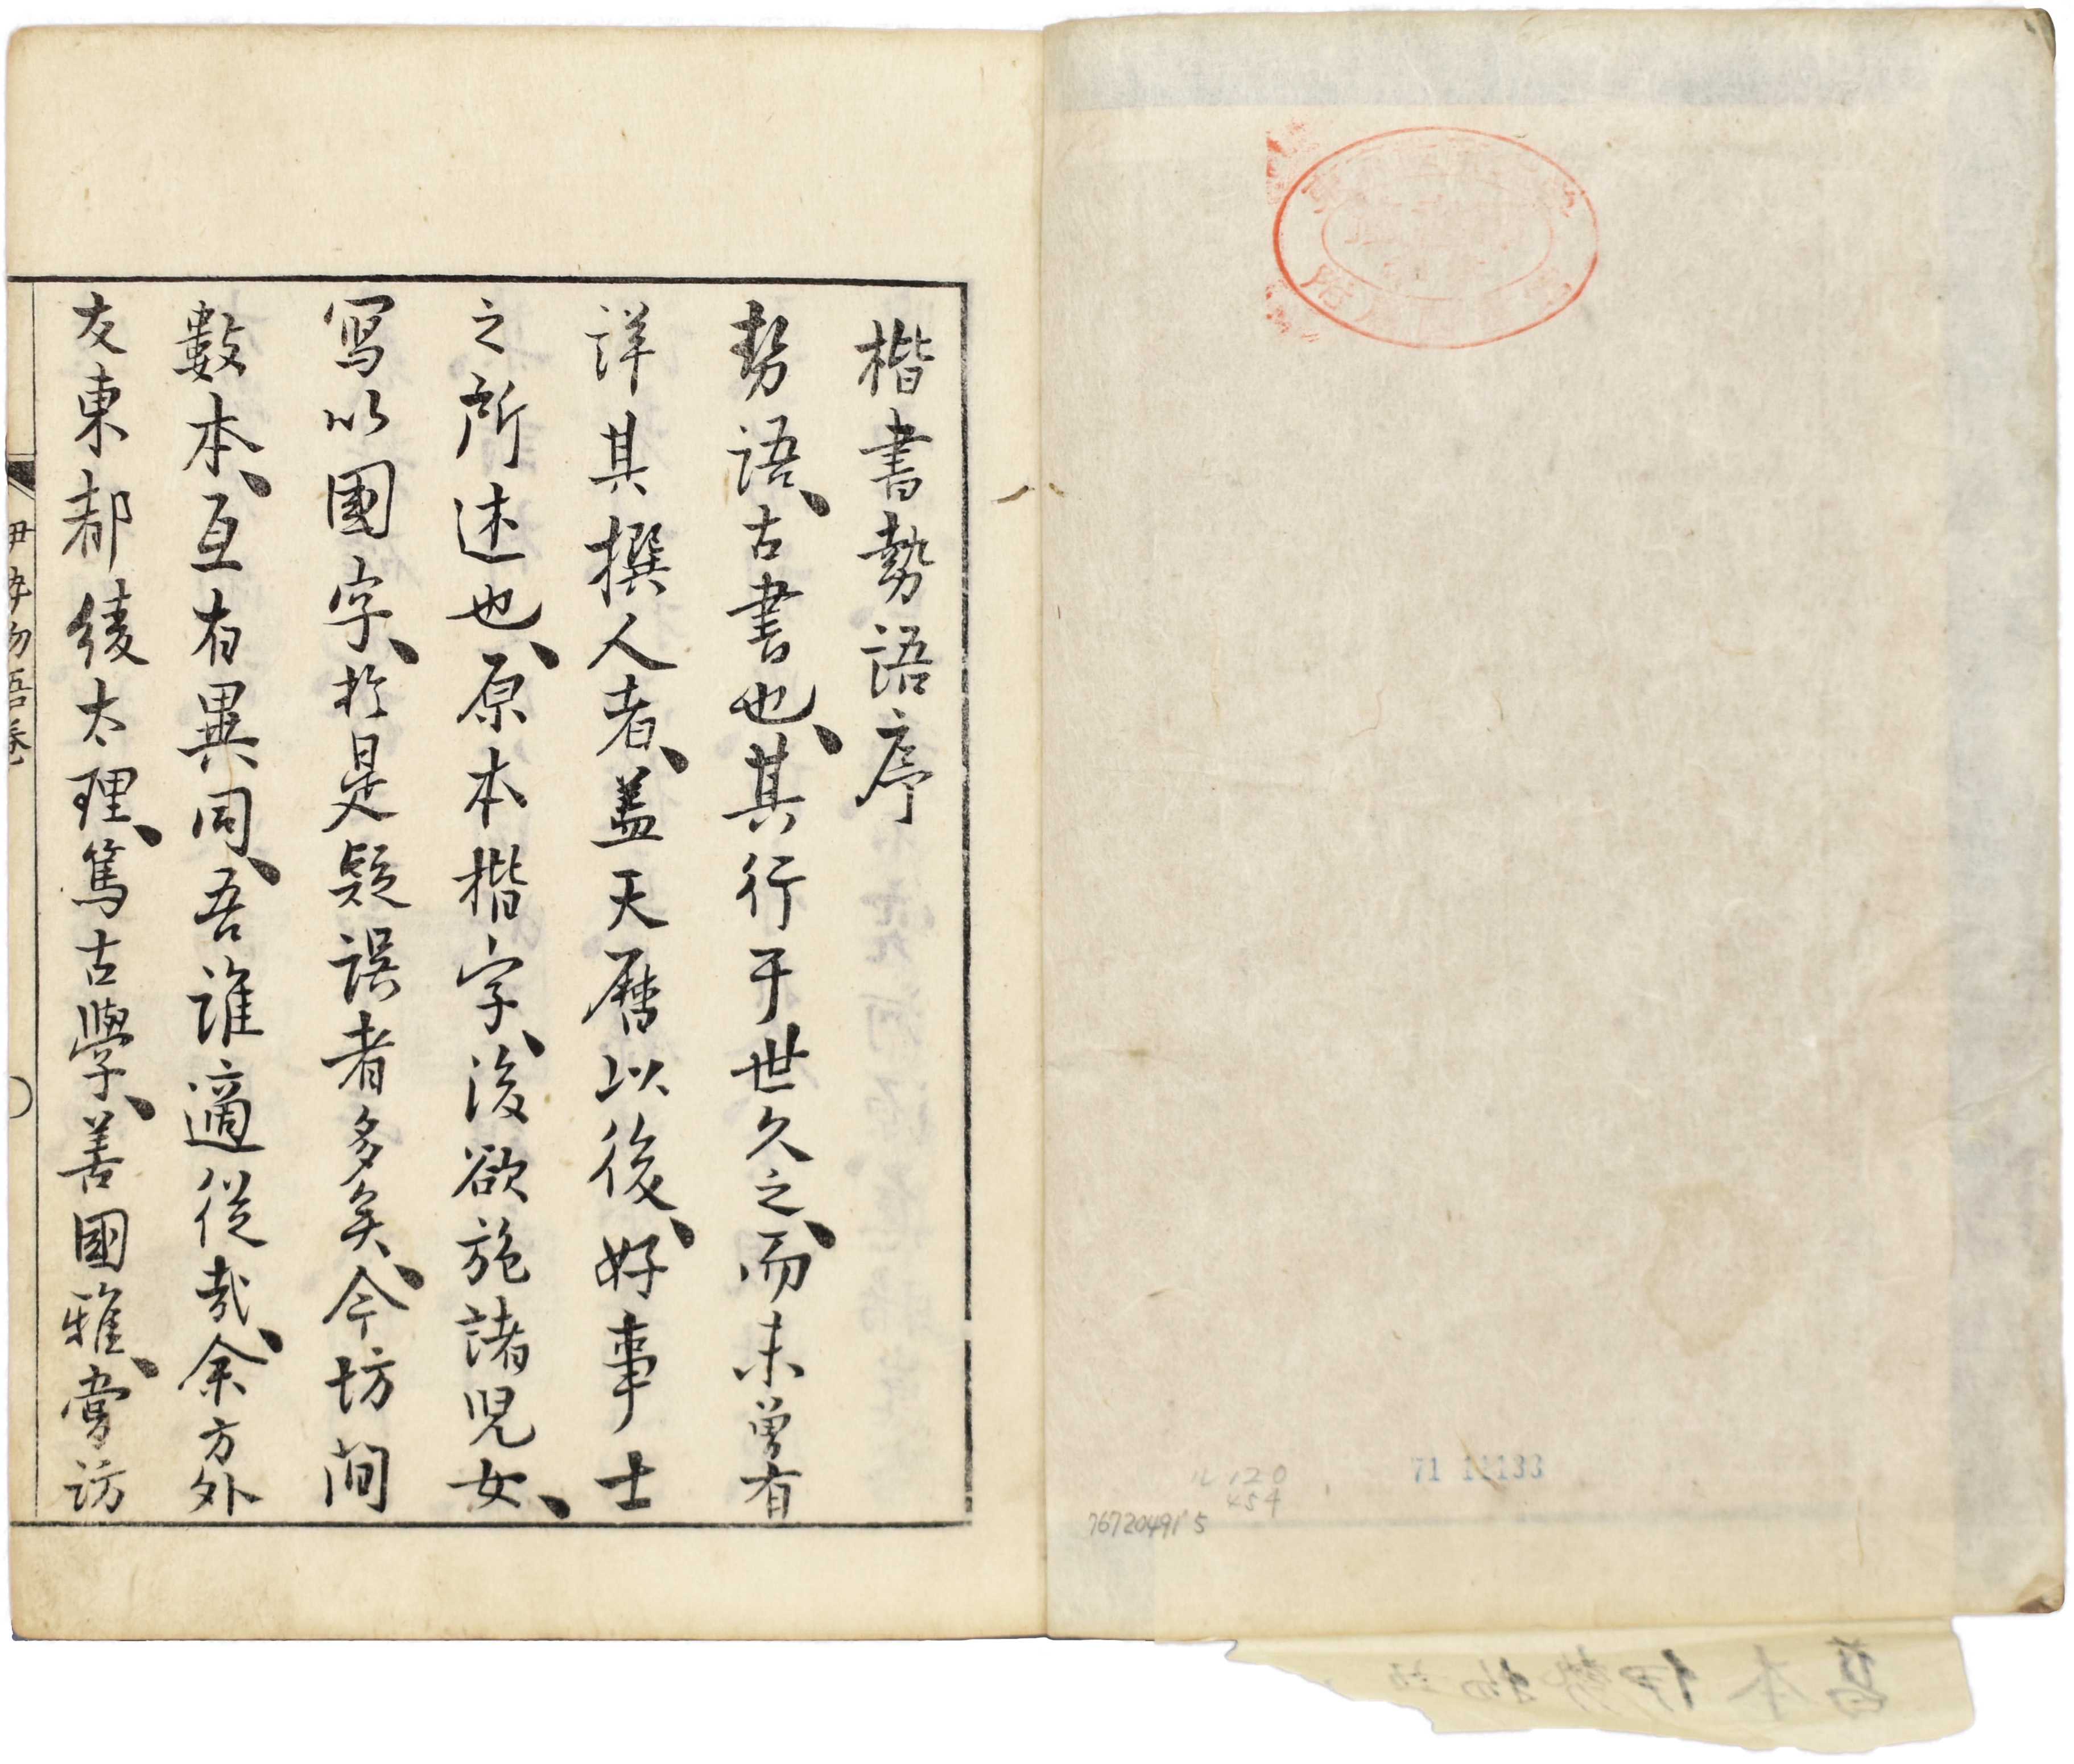 楷書勢語序
勢語、古書也、其行于世久之、而未曽有
詳其撰人者、盖天暦以後、好事士
之所述也、原本楷字、後欲施諸児女、
寫以國字、於是疑誤者多矣、今坊間
數本、互有異同、吾誰適從哉、余方外
友東都綾太理、篤古學、善國雅、嘗訪
71
76720491 5
120
454
本伊勢物語